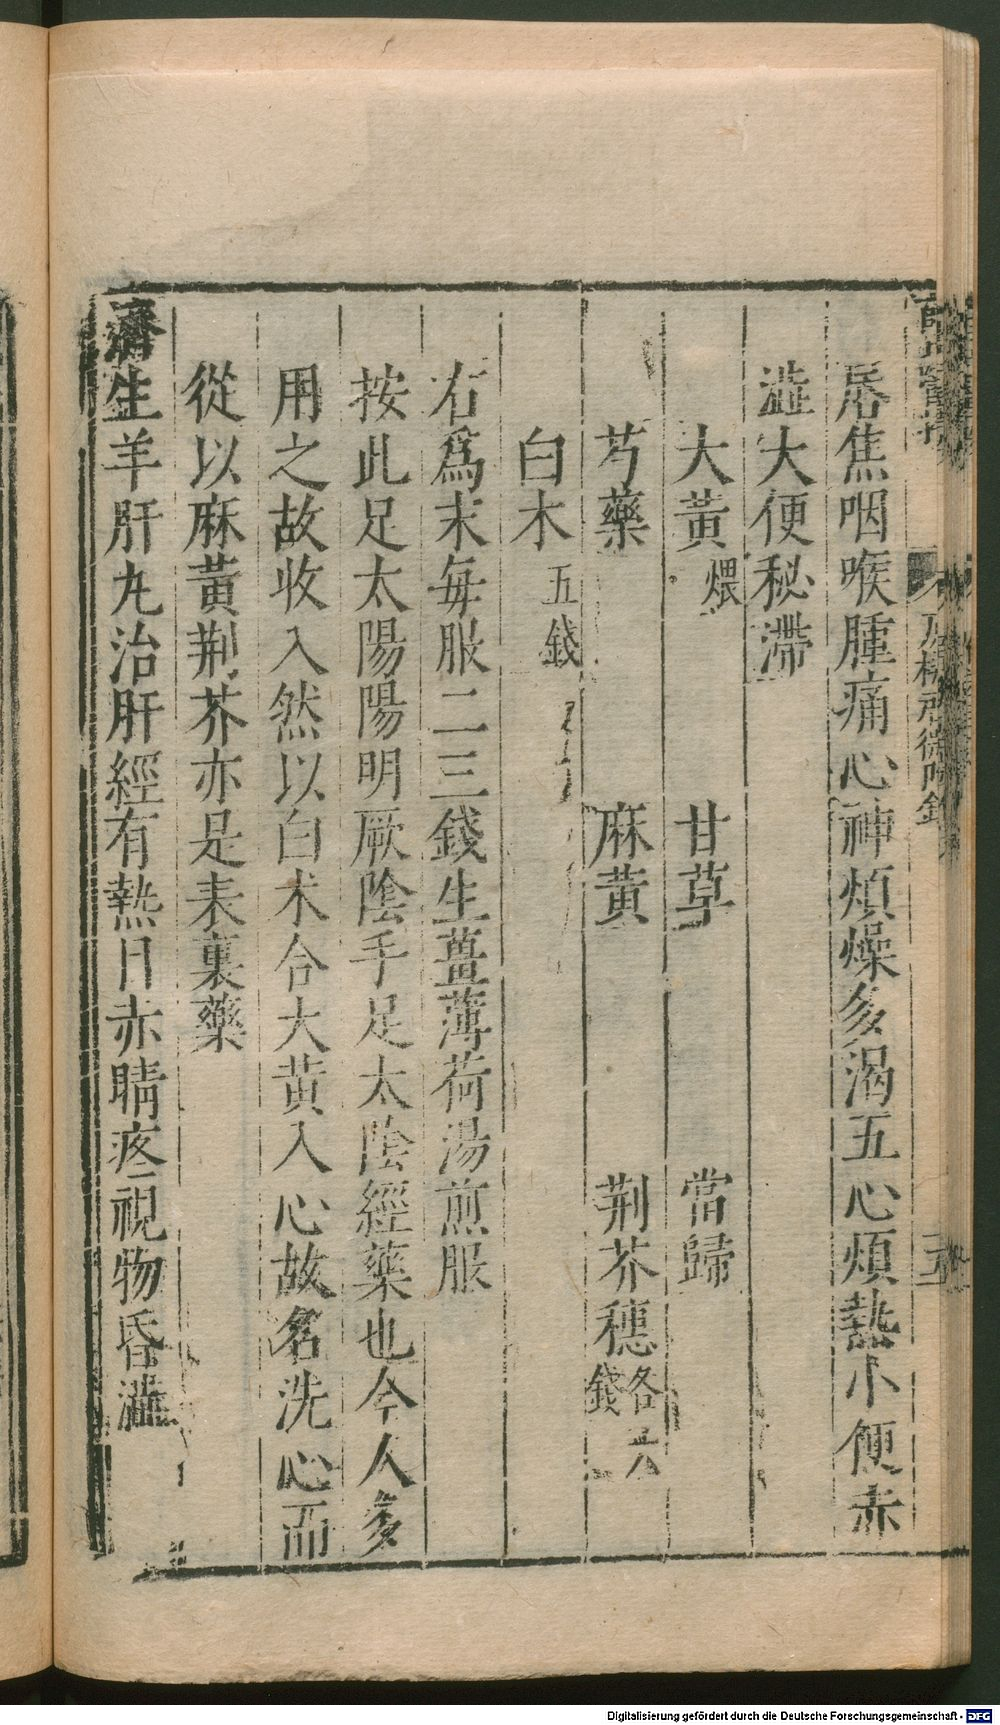 唇焦咽喉腫痛心神煩燥多渴五心煩熱小便赤
澁大便秘滯
大黃煨 甘草 當歸
芍藥 麻黃 荆芥穗各六錢
白木五錢
右爲末每服二三錢生薑薄荷湯煎服
按此足太陽陽明厥陰手足太陰經藥也今人多
用之故收入然以白木合大黃入心故名洗心而
從以麻黃荆芥亦是表裏藥
濟生羊肝丸治肝經有熱目赤睛疼視物昏澁
Digitalisierung gefördert durch die Deutsche Forschungsgemeinschaft - DFG